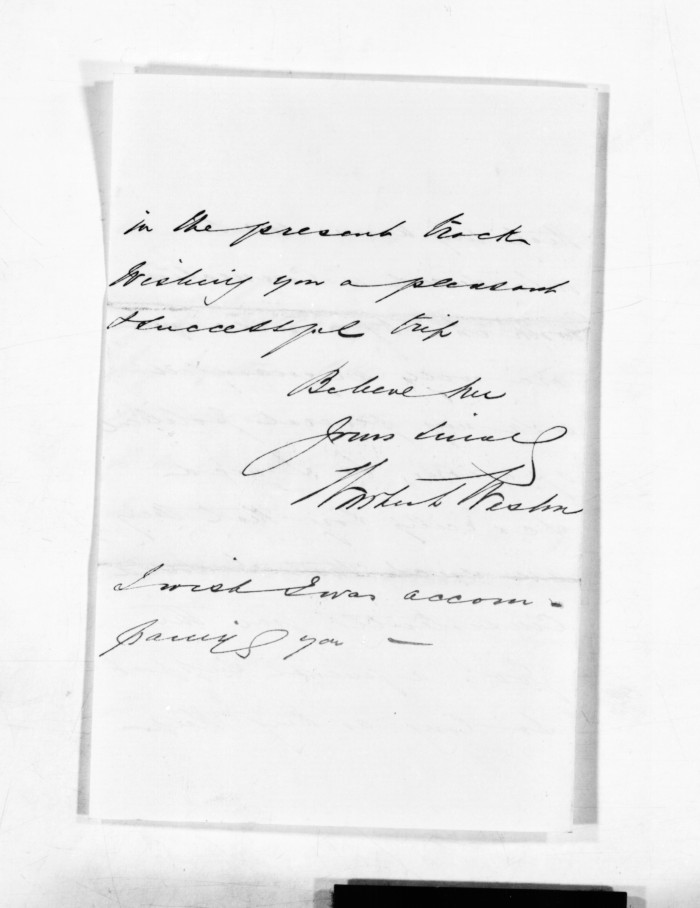 in the present track
Wishing you a pleasant
& successful trip
Believe me
Yours
I wish I was accom -
panying you —